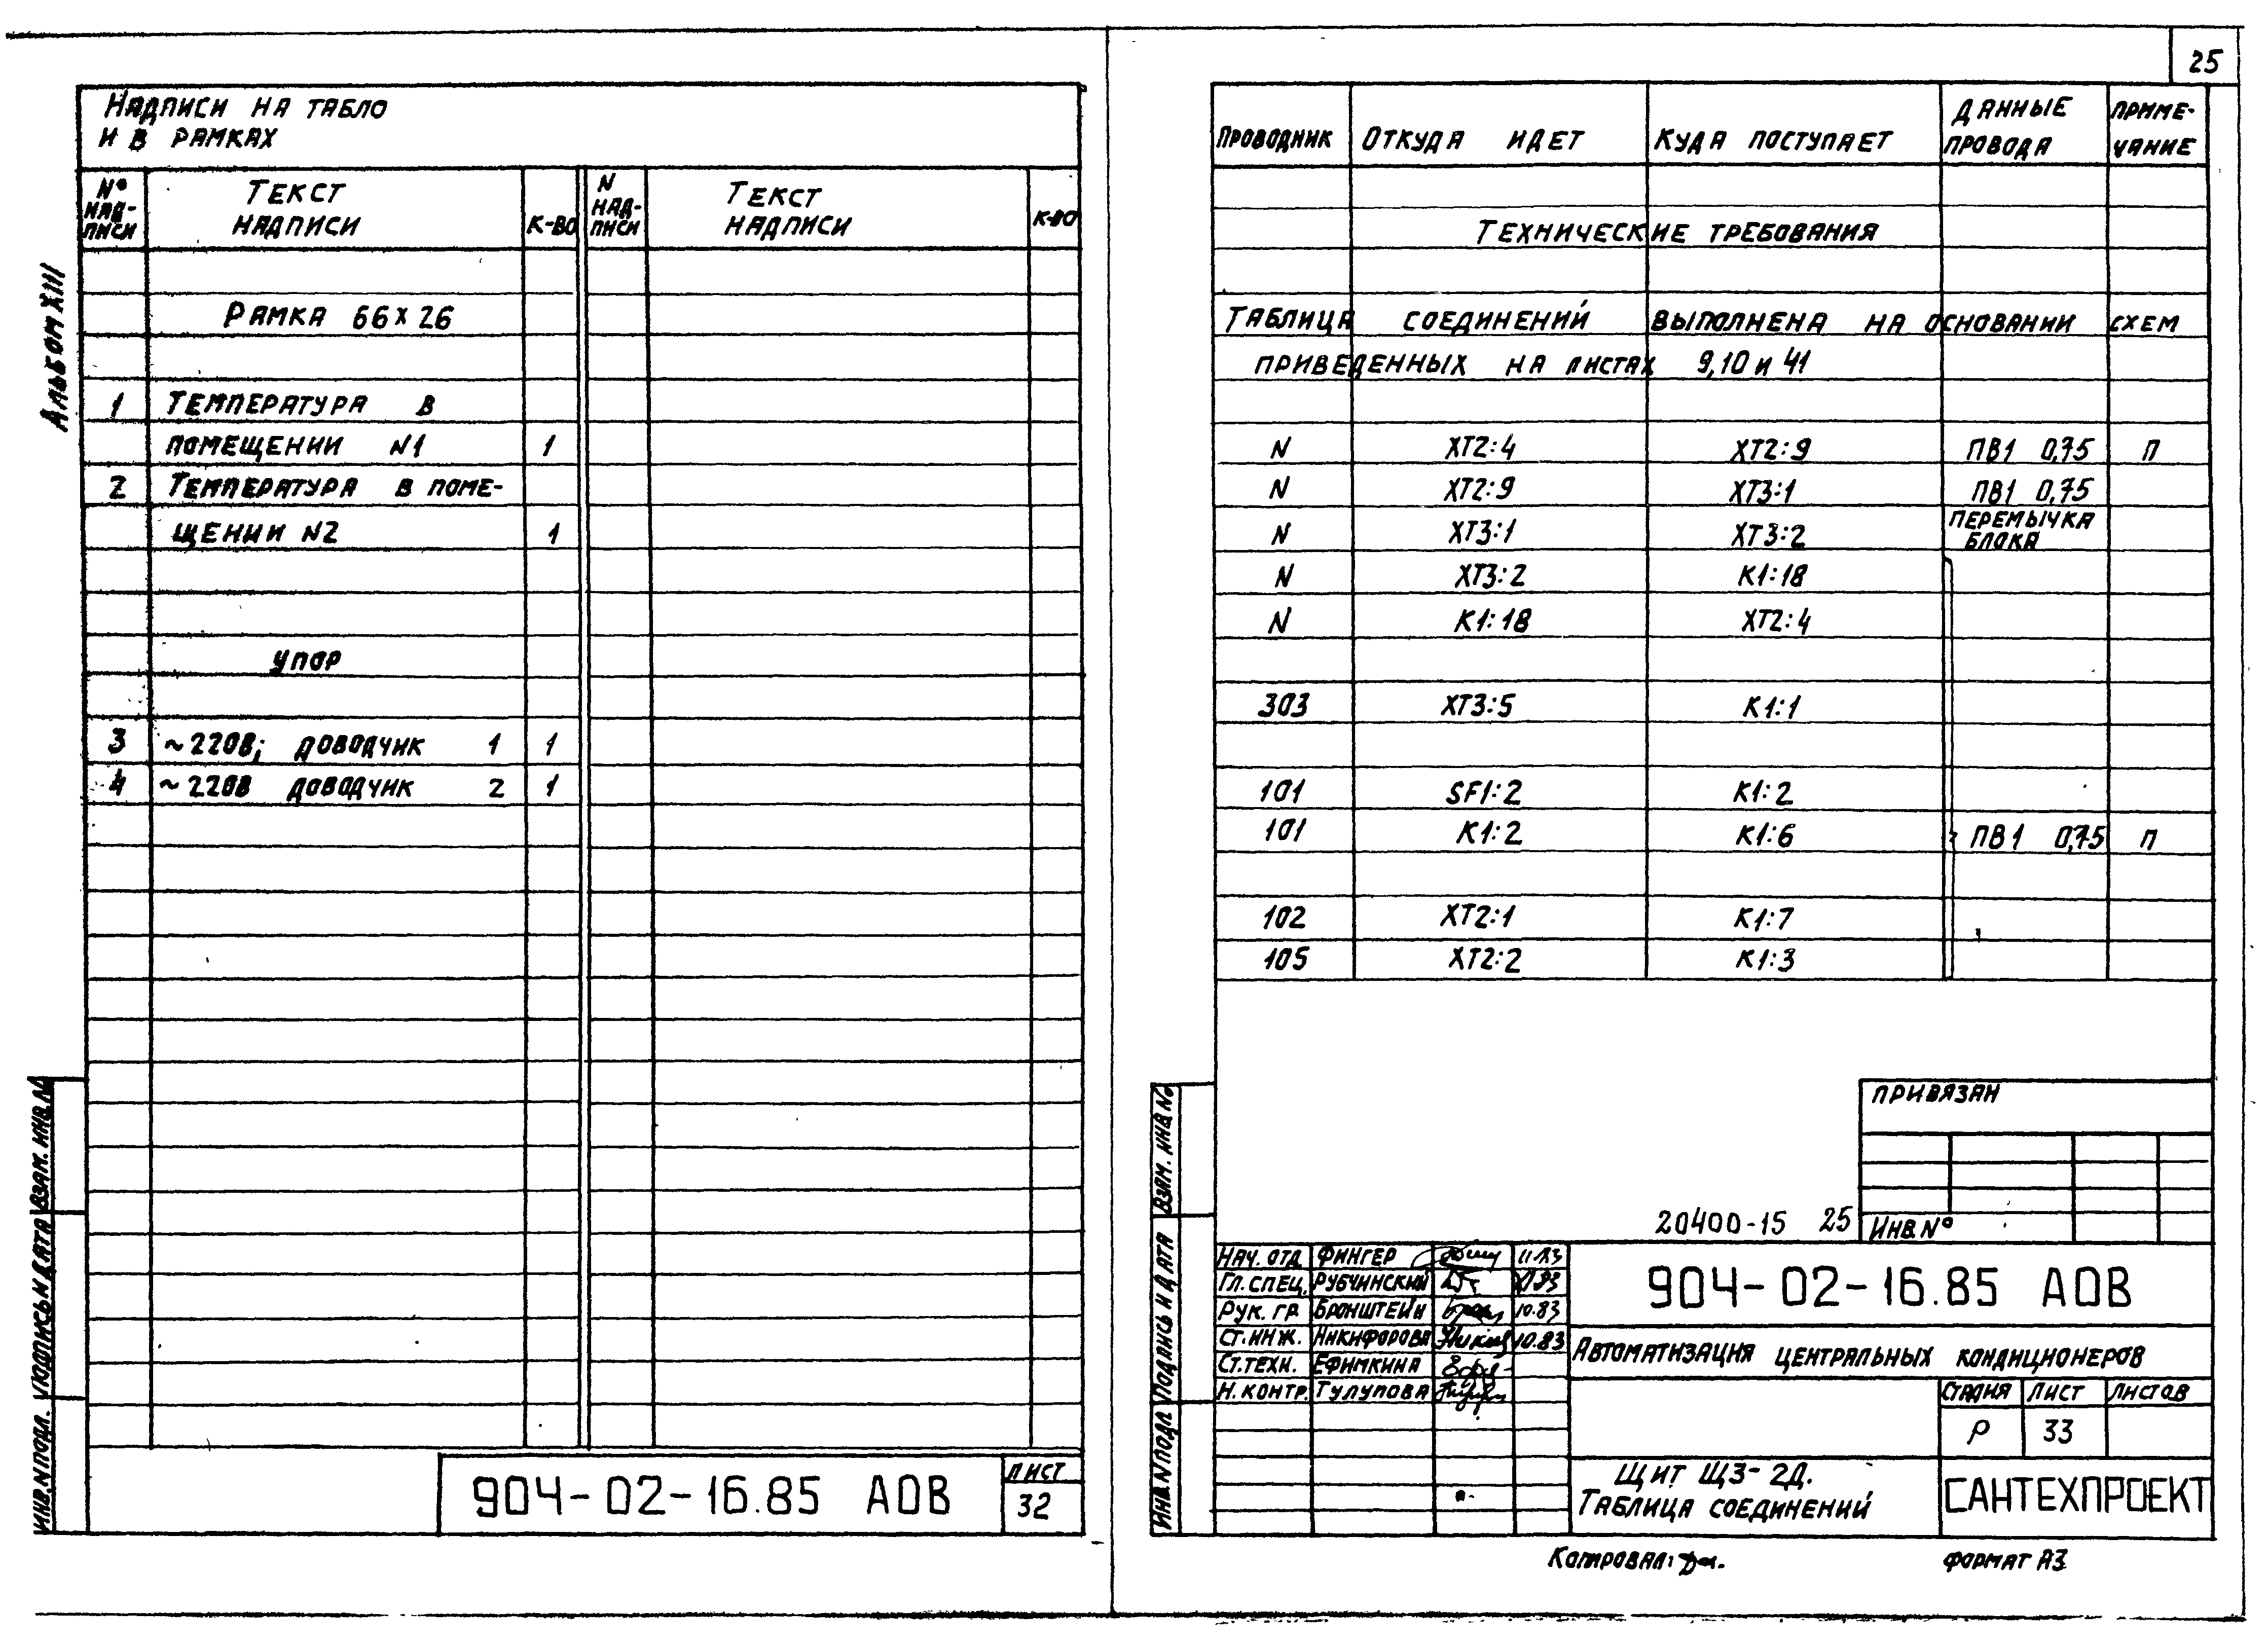 25
Альбом XIII
Надписи на табло
и в рамках
№ надписи Текст надписи к-во N надписи Текст надписи к-во
Рамка 66×26
1 Температура в
помещении N1 1
2 Температура в поме-
щении N2 1
упор
3 ~220В; доводчик 1 1
4 ~220В доводчик 2 1
904-02-16.85 АОВ
Лист
32
Инв.N подл. Подпись и дата Взам. инв. N
Проводник Откуда идет Куда поступает Данные провода Примечание
Технические требования
Таблица соединений выполнена на основании схем
приведенных на листах 9,10 и 41
N XT2:4 XT2:9 ПВ1 0,75 П
N XT2:9 XT3:1 ПВ1 0,75
N XT3:1 XT3:2 перемычка блока
N XT3:2 K1:18
N K1:18 XT2:4
303 XT3:5 K1:1
101 SF1:2 K1:2
101 K1:2 K1:6 ПВ1 0,75 П
102 XT2:1 K1:7
105 XT2:2 K1:3
Привязан
Инв.№
20400-15 25
Инв.N подл Подпись и дата Взам. инв №
Нач. отд Фингер 11.83
Гл. спец. Рубчинский
Рук. гр Бронштейн 10.83
Ст. инж. Никифорова 10.83
Ст. техн. Ефимкина
Н. контр. Тулупова
904-02-16.85 АОВ
Автоматизация центральных кондиционеров
Стадия Лист Листов
Р 33
Щит ЩЗ-2Д.
Таблица соединений
САНТЕХПРОЕКТ
Копировал:
формат А3